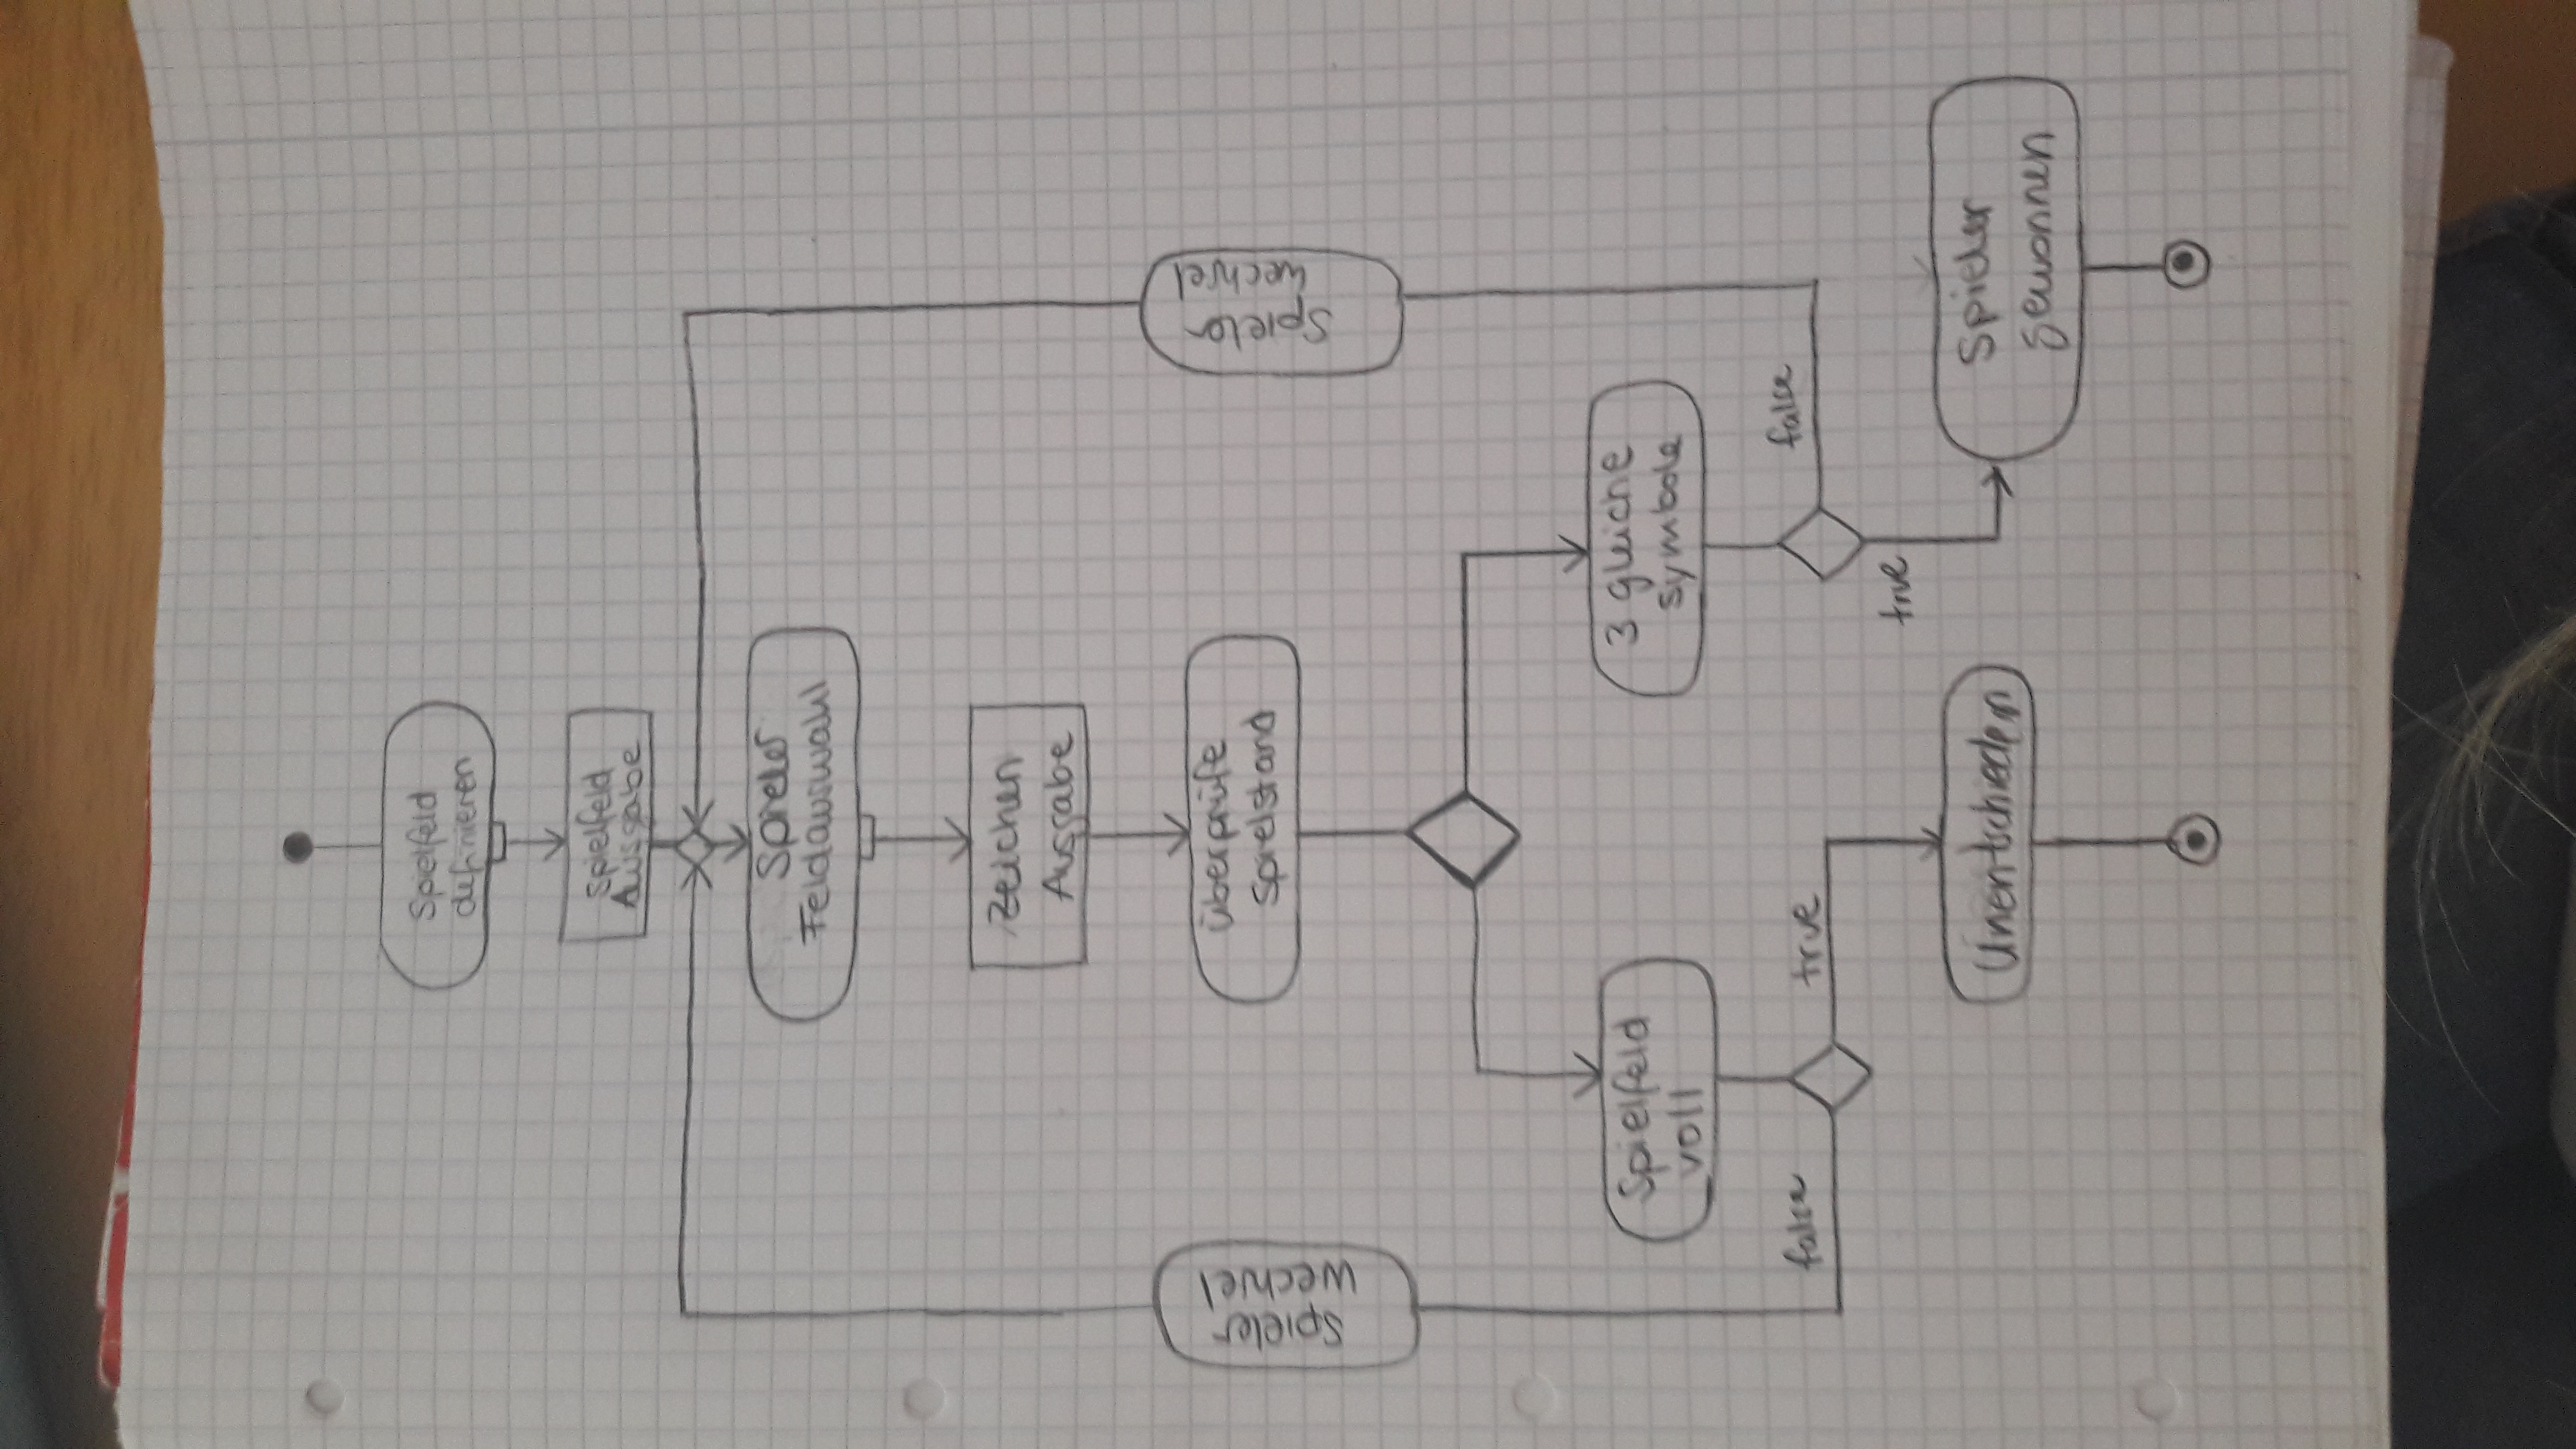 Spielfeld
definieren
Spielfeld
Ausgabe
Spieler
Feldauswahl
Zeichen
Ausgabe
Spieler
wechsel
überprüfe
Spielstand
Spieler
wechsel
Spielfeld
voll
3 gleiche
symbole
false
true
false
true
Unentschieden
Spieler
gewonnen